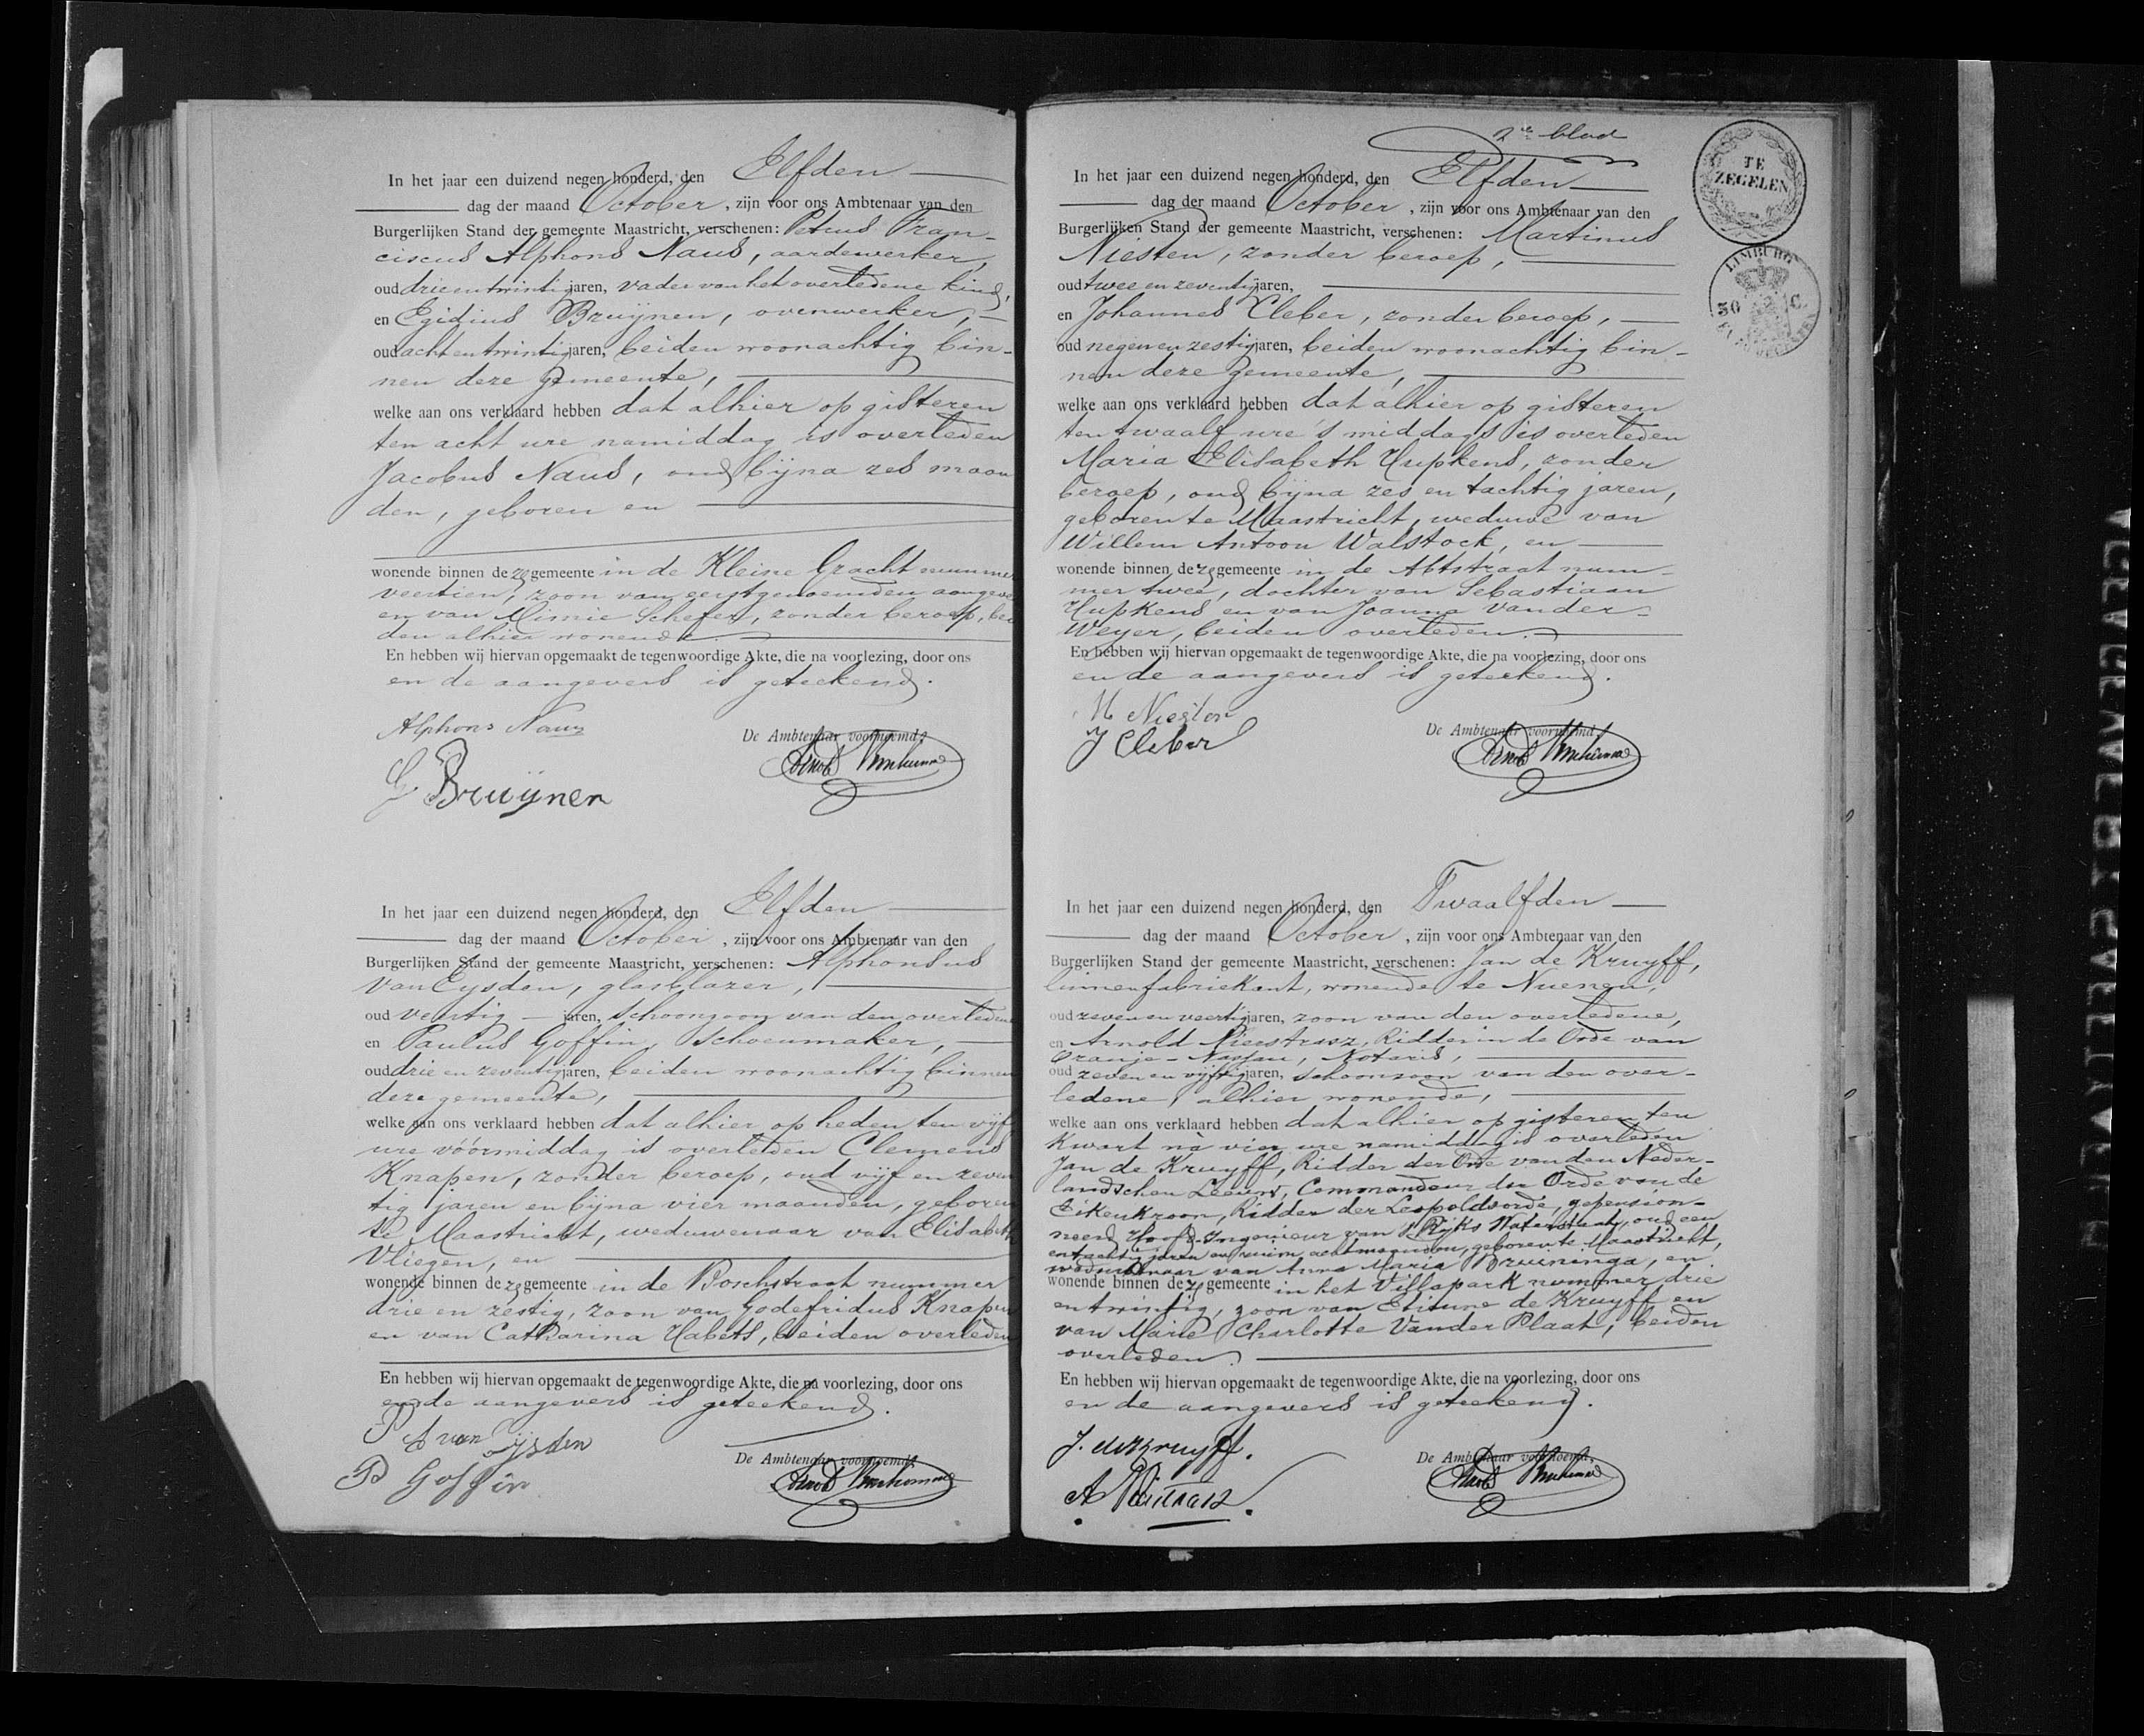 In het jaar een duizend negen honderd, den Elfden
dag der maand October, zijn voor ons Ambtenaar van den
Burgerlijken Stand der gemeente Maastricht, verschenen: Petrus Fran-
ciscus Alphons Naus, aardewerker,
oud drie en twintig jaren, vader van het overledene kind,
en Egidius Bruijnen, ovenwerker,
oud acht en twintig jaren, beiden woonachtig bin-
nen deze gemeente,
welke aan ons verklaard hebben dat alhier op gisteren
ten acht ure namiddag is overleden
Jacobus Naus, oud bijna zes maan
den, geboren en
wonende binnen deze gemeente in de Kleine Gracht nummer
veertien, zoon van eerstgenoemden aangeve
en van Mimie Schefer, zonder beroep, bei
den alhier wonende.
En hebben wij hiervan opgemaakt de tegenwoordige Akte, die na voorlezing, door ons
en de aangevers is geteekend.
Alphons Naus
De Ambtenaar voornoemd,
G Bruijnen
In het jaar een duizend negen honderd, den Elfden
dag der maand October, zijn voor ons Ambtenaar van den
Burgerlijken Stand der gemeente Maastricht, verschenen: Alphonsus
Van Eysden, glasblazer,
oud veertig jaren, schoonzoon van den overledene
en Paulus Goffin, Schoenmaker,
oud drie en zeventig jaren, beiden woonachtig binnen
deze gemeente,
welke aan ons verklaard hebben dat alhier op heden ten vijf
ure vóórmiddag is overleden Clemens
Knapen, zonder beroep, oud vijf en zeven
tig jaren en bijna vier maanden, geboren
te Maastricht, weduwenaar van Elisabeth
Vliegen, en
wonende binnen deze gemeente in de Boschstraat nummer
drie en zestig, zoon van Godefridus Knapen
en van Catharina Habets, beiden overleden
En hebben wij hiervan opgemaakt de tegenwoordige Akte, die na voorlezing, door ons
en de aangevers is geteekend.
A van Eijsden
De Ambtenaar voornoemd,
P Goffin
2e blad
TE
ZEGELEN
LIMBURG
50 C.
In het jaar een duizend negen honderd, den Elfden
dag der maand October, zijn voor ons Ambtenaar van den
Burgerlijken Stand der gemeente Maastricht, verschenen: Martinus
Niesten, zonder beroep,
oud twee en zeventig jaren,
en Johannes Cleber, zonder beroep,
oud negen en zestig jaren, beiden woonachtig bin-
nen deze gemeente,
welke aan ons verklaard hebben dat alhier op gisteren
ten twaalf ure 's middags is overleden
Maria Elisabeth Hupkens, zonder
beroep, oud bijna zes en tachtig jaren,
geboren te Maastricht, weduwe van
Willem Antoon Walstock, en
wonende binnen deze gemeente in de Abtstraat num-
mer twee, dochter van Sebastiaan
Hupkens en van Joanna Vander-
Weyer, beiden overleden.
En hebben wij hiervan opgemaakt de tegenwoordige Akte, die na voorlezing, door ons
en de aangevers is geteekend.
M Niesten
De Ambtenaar voornoemd,
J Cleber
In het jaar een duizend negen honderd, den Twaalfden
dag der maand October, zijn voor ons Ambtenaar van den
Burgerlijken Stand der gemeente Maastricht, verschenen: Jan de Kruyff,
linnenfabriekant, wonende te Nuenen,
oud zeven en veertig jaren, zoon van den overledene,
en Arnold Ridder in de Orde van
Oranje-Nassau, Notaris,
oud zeven en vijftig jaren, schoonzoon van den over-
ledene, alhier wonende,
welke aan ons verklaard hebben dat alhier op gisteren ten
kwart nà vier ure namiddag is overleden
Jan de Kruyff, Ridder der Orde van den Neder-
landschen Leeuw, Commandeur der Orde van de
Eikenkroon, Ridder der Leopoldsorde, gepension-
neerd Hoofd-Ingenieur van 's Rijks Waterstaat, oud een
en tachtig jaren en ruim acht maanden, geboren te Maastricht,
weduwenaar van Anna Maria Bruininga, en
wonende binnen deze gemeente in het Villapark nummer drie
en twintig, zoon van Etienne de Kruyff en
van Marie Charlotte Vander Plaat, beiden
overleden.
En hebben wij hiervan opgemaakt de tegenwoordige Akte, die na voorlezing, door ons
en de aangevers is geteekend.
J. de Kruyff.
De Ambtenaar voornoemd,